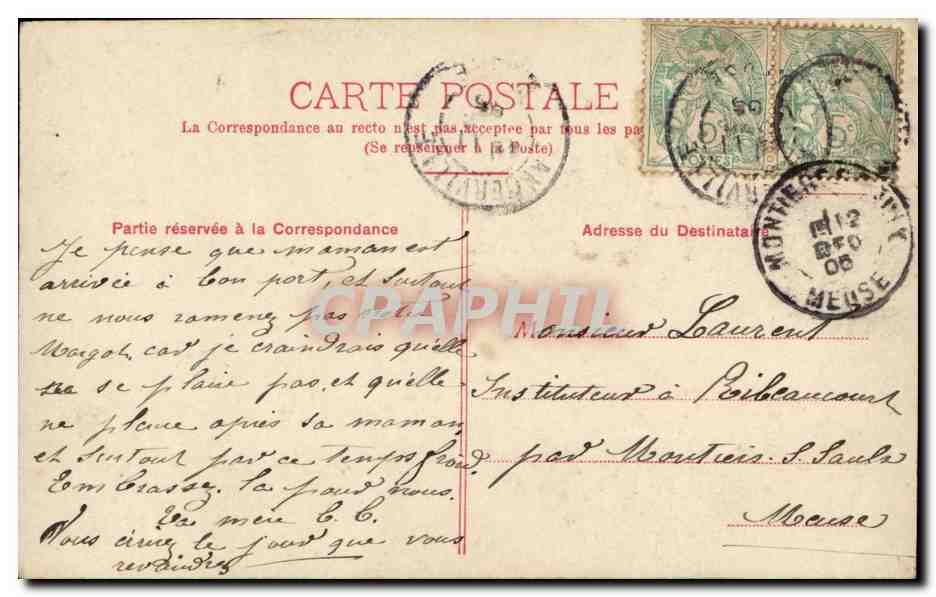 CARTE POSTALE
La Correspondance au recto n'est pas acceptée par tous les pa
(Se renseigner à la Poste)
ANGERVILLE
Partie réservée à la Correspondance
Adresse du Destinataire
MONTIERS
12
FEV
05
MEUSE
Je pense que maman est
arrivée à bon port, et surtout
ne nous ramenez pas petite
Margot, car je craindrais qu'elle
se plaise pas, et qu'elle
ne pleure après sa maman,
et surtout par ce temps froid.
Embrassez-la pour nous.
Ta mère C. C.
Vous le jour que vous
reviendrez
CPAPHIL
Monsieur Laurent
Instituteur à Ribeaucourt
par Montiers. S. Saulx
Meuse